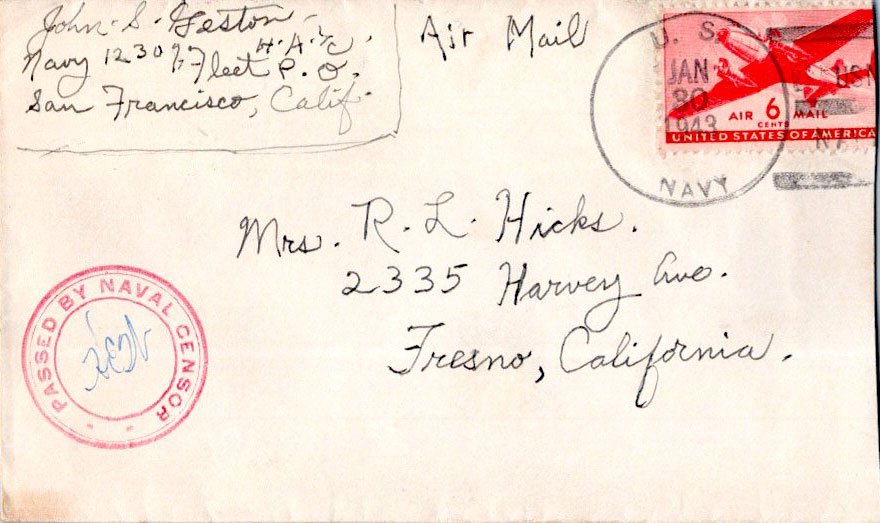 John. S. Heston
H.A.1/c.
Navy 1230 % Fleet P.O.
San Francisco, Calif.
Air Mail
U. S.
JAN
30
1943
NAVY
USN
AIR 6 MAIL
CENTS
UNITED STATES OF AMERICA
Mrs. R. L. Hicks.
2335 Harvey Ave.
Fresno, California.
PASSED BY NAVAL CENSOR